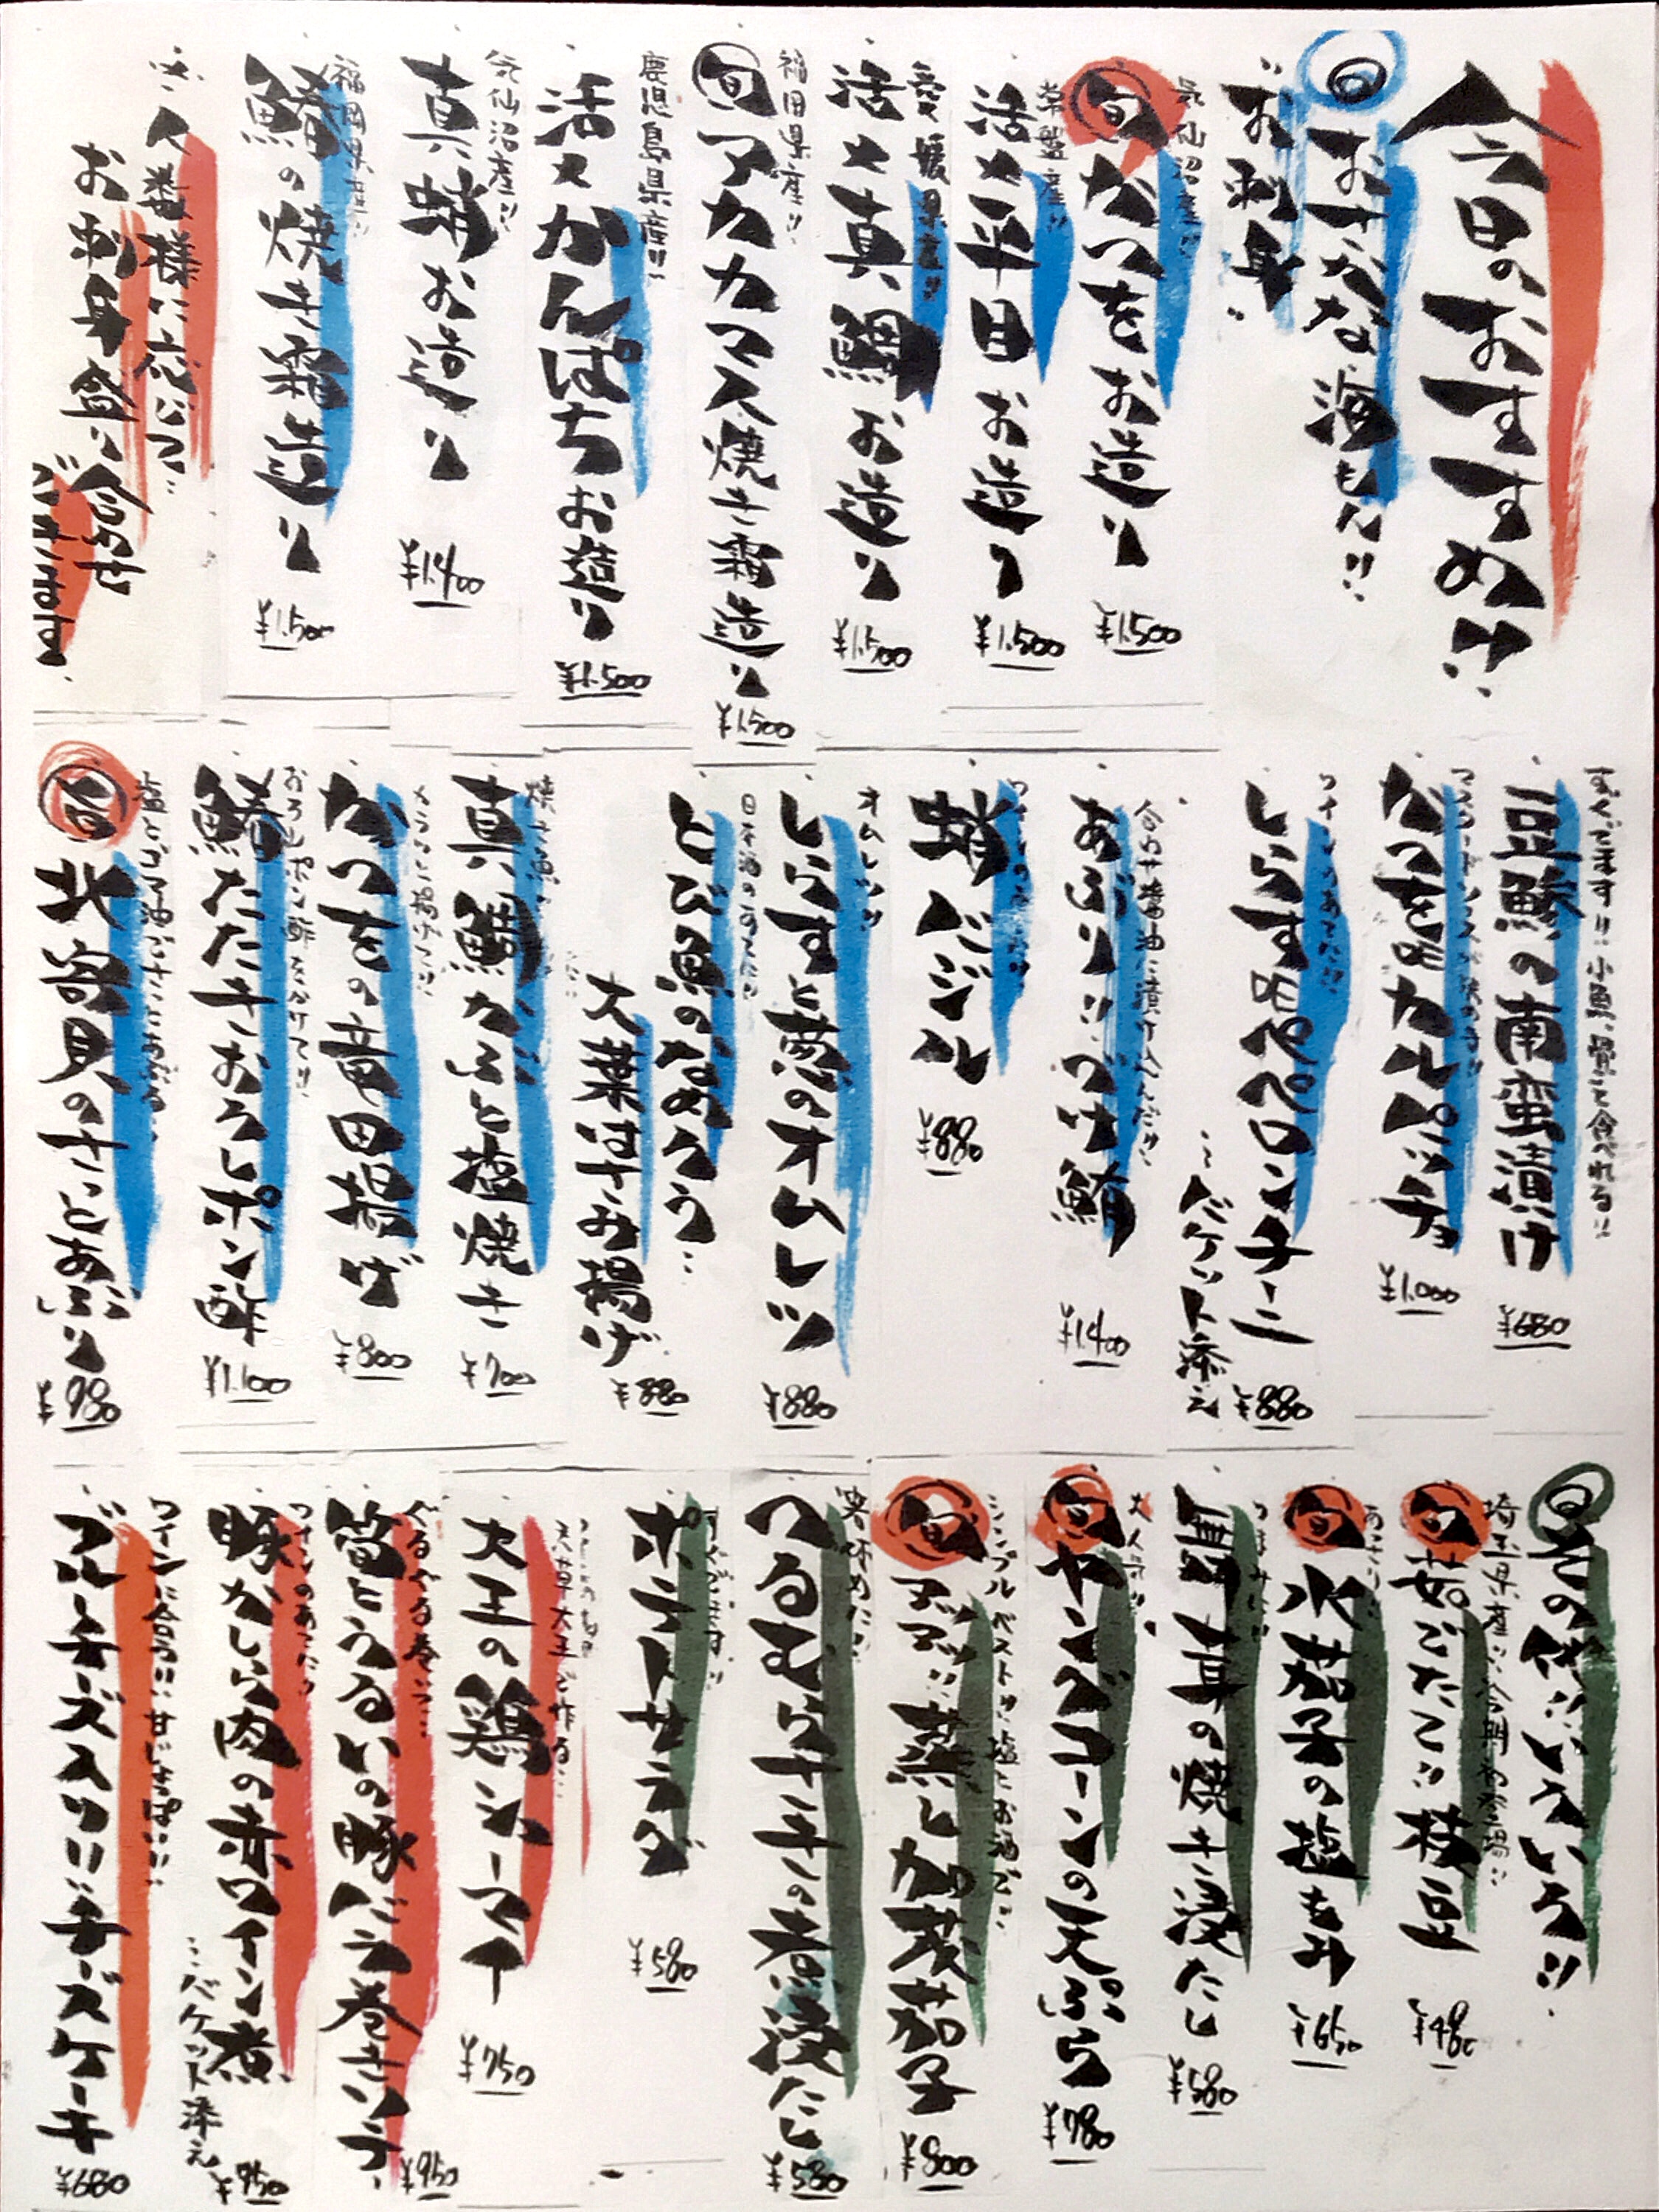 今日のおすすめ!!
おさかな海もん!!
お刺身
気仙沼産!!
旬 かつをお造り
¥1.500
常磐産!!
活〆平目お造り
¥1.500
愛媛県産!!
活〆真鯛お造り
¥1.500
福岡県産!!
旬 アカカマス焼き霜造り
¥1.500
鹿児島県産!!
活〆かんぱちお造り
¥1.500
気仙沼産!!
真蛸お造り
¥1.400
福岡県産!!
鰆の焼き霜造り
¥1.500
人数様に応じて
お刺身盛り合わせ
できます
すぐでます!!小魚。骨ごと食べれる!!
豆鯵の南蛮漬け
¥680
マスタードソースが決め手!!
かつをのカルパッチョ
¥1.000
ワインのあてに!!
しらすペペロンチーニ
バケット添え
¥880
合わせ醤油に漬け込んだ!!
あぶり!!づけ鮪
¥1.400
蛸バジル
¥880
オムしらす!!
しらすと葱のオムレツ
¥880
日本酒のあてに!!
とび魚のなめろう…
大葉はさみ揚げ
¥880
真鯛かぶと塩焼き
¥700
カラッと揚げて!!
かつをの竜田揚げ
¥800
おろしポン酢をかけて!!
鰆たたきおろしポン酢
¥1.100
塩とごま油でさっとあぶる
旬 北寄貝のさっとあぶり
¥980
その他!!いろいろ!!
埼玉県産!!
旬 茹でたて!!枝豆
¥480
旬 水茄子の塩もみ
¥650
つまみに!!
舞茸の焼き浸たし
¥580
大人気!!
旬 ヤングコーンの天ぷら
¥780
シンプルベスト!!塩とお醤油で…
旬 アツアツ!!蒸し加茂茄子
¥800
つるむらさきの煮浸たし
¥580
すぐでます!!
ポテトサラダ
¥580
大王の鶏シャーマ
¥750
ぐるぐる巻いて…
筍とうるいの豚バラ巻きソテー
¥950
ワインのあてに!!
豚かしら肉の赤ワイン煮
…バケット添え
¥950
ワインに合う!!甘じょっぱい!!
ブルーチーズスリ!!チーズケーキ
¥680